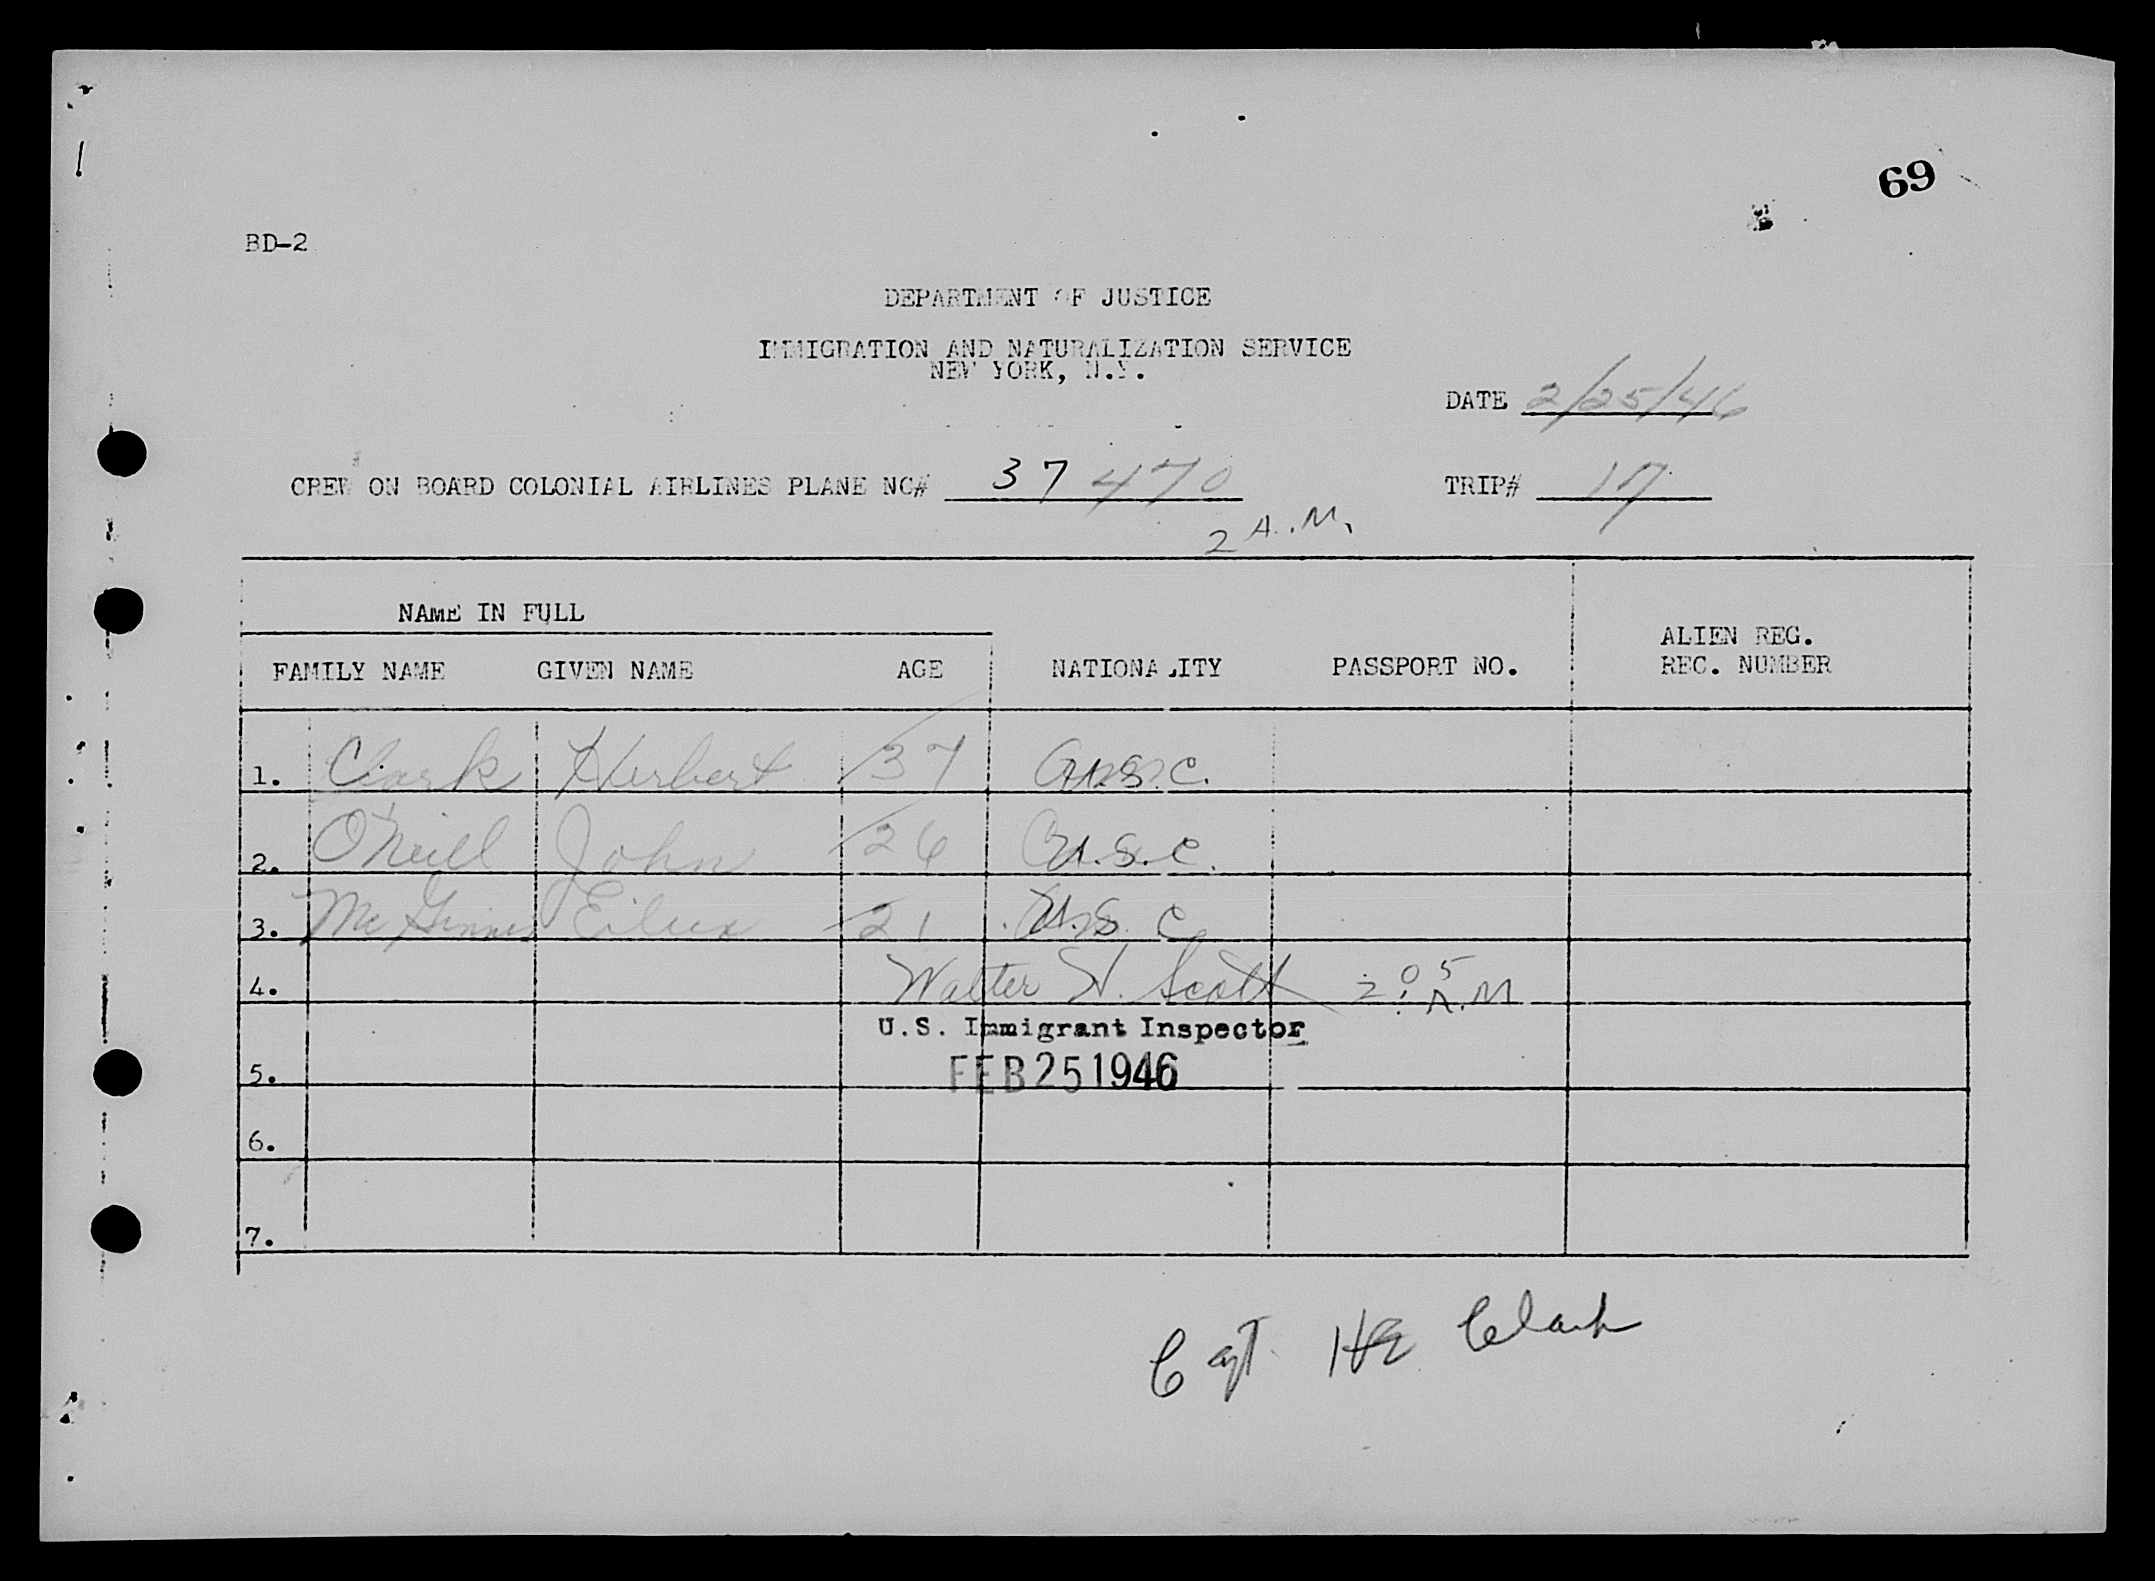 69
BD-2
DEPARTMENT OF JUSTICE
IMMIGRATION AND NATURALIZATION SERVICE
NEW YORK, N.Y.
DATE 2/25/46
CREW ON BOARD COLONIAL AIRLINES PLANE NC# 37470
TRIP# 17
2 A.M.
NAME IN FULL
FAMILY NAME GIVEN NAME AGE NATIONALITY PASSPORT NO. ALIEN REG. REC. NUMBER
1. Clark Herbert 37 U.S.C.
2. O'Neill John 26 U.S.C.
3. McGinnis 21 U.S.C
4. Walter H. Scott 2:05 A.M
U.S. Immigrant Inspector
5. FEB 25 1946
6.
7.
Capt. HE Clark